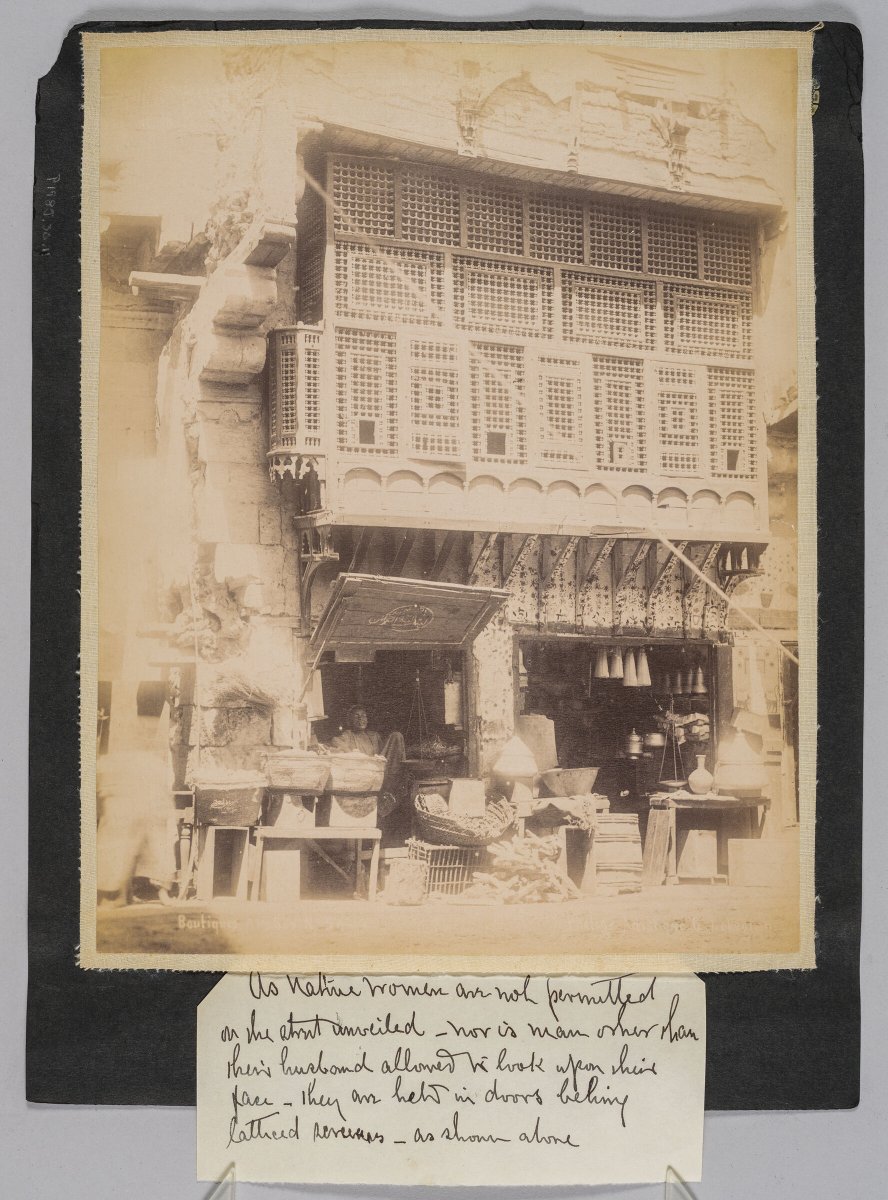 Boutique
As Native Women are not permitted
on the street unveiled – nor is man other than
their husband allowed to look upon their
face – They are held in doors behing
latticed screens – as shown above